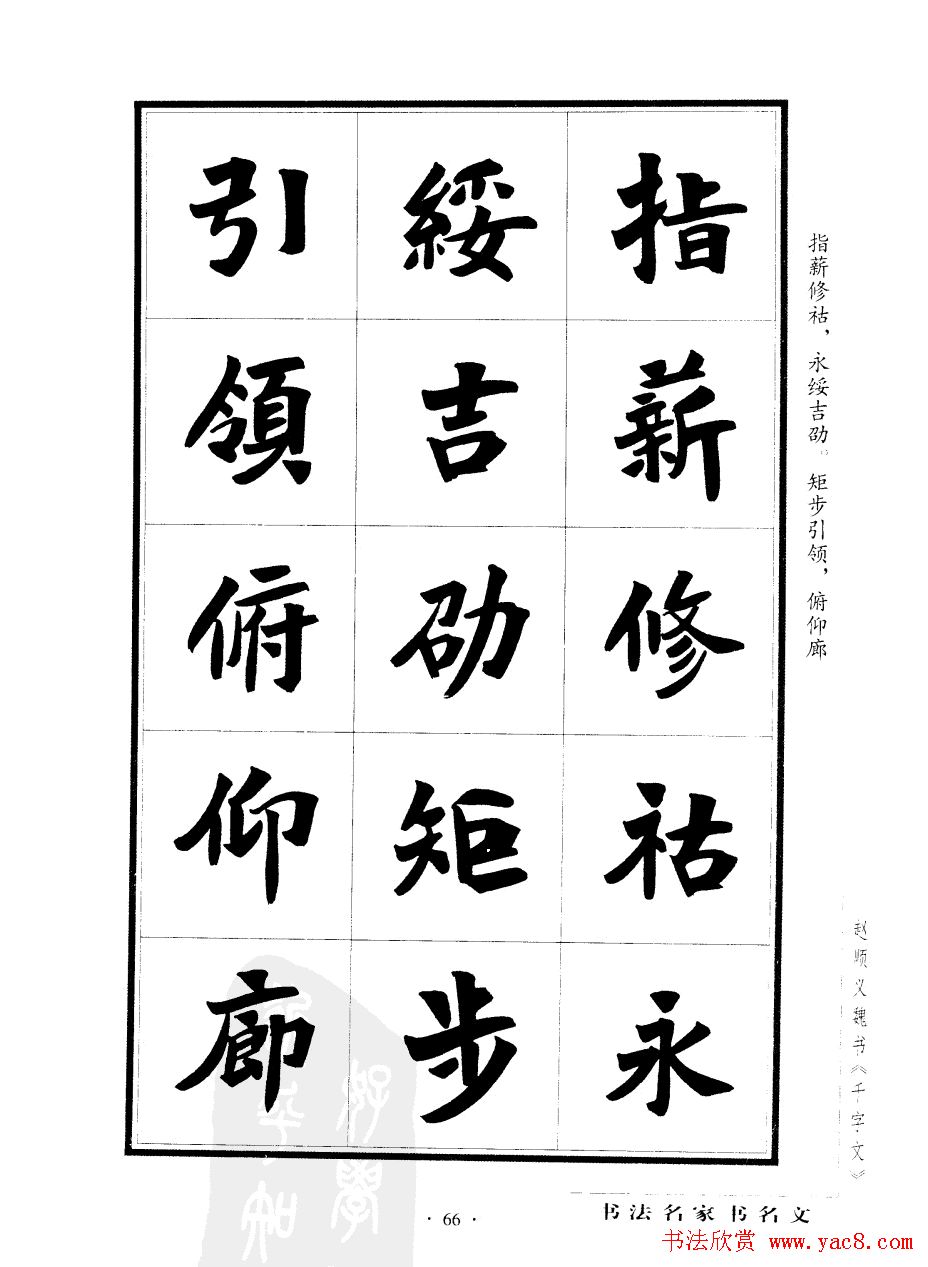 指薪修祜永
綏吉劭矩步
引領俯仰廊
指薪修祜，永绥吉劭。矩步引领，俯仰廊
赵顺义魏书《千字文》
书法名家书名文
·66·
书法欣赏 www.yac8.com